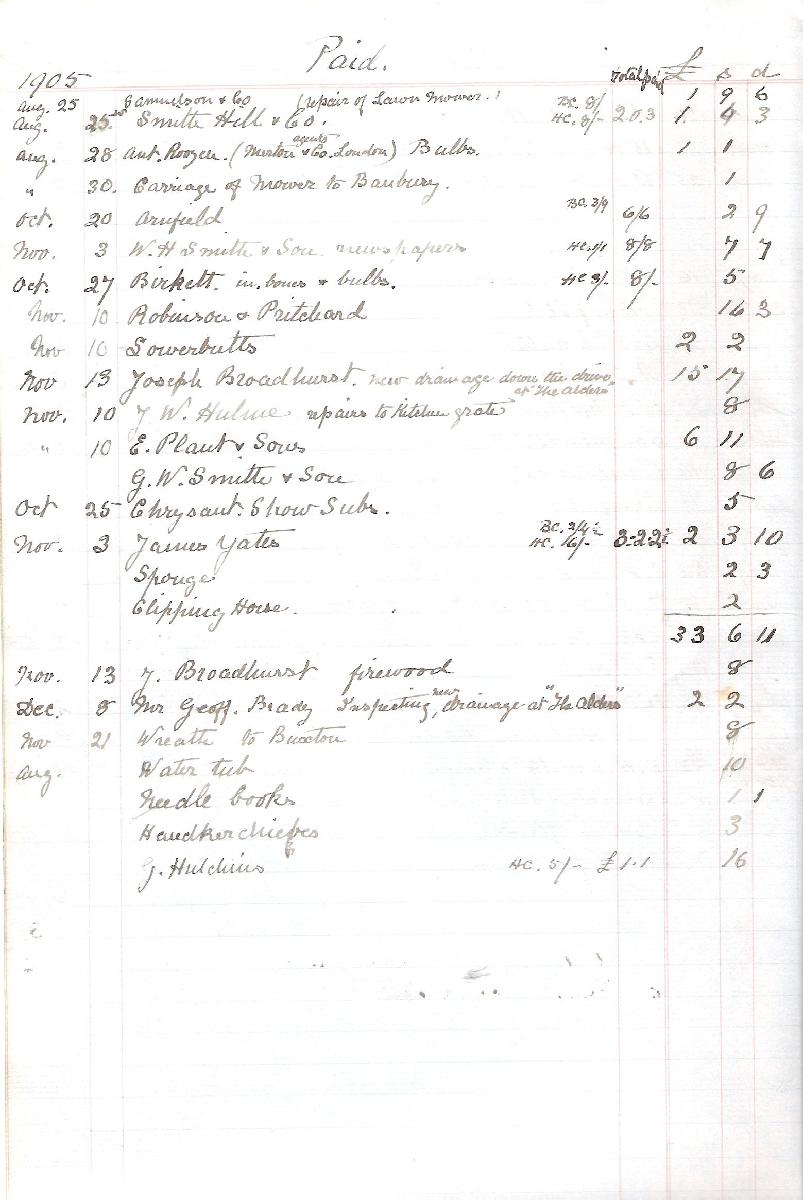 Paid.
1905 Total paid £ s d
Aug. 25 Samuelson & Co (repair of Lawn Mower.) 1 9 6
Aug. 25 Smith Hill & Co. BC. 8/ HC. 8/- 2.0.3 1. 4 3
Aug. 28 Ant. Roozen. (Merton & Co. London) agents Bulbs. 1 1
" 30. Carriage of Mower to Banbury. 1
Oct. 20 Arnfield BC. 3/9 6/6 2 9
Nov. 3 W. H Smith & Son newspapers HC. 1/1 8/8 7 7
Oct. 27 Birkett. in. bones & bulbs. HC 3/- 8/- 5
Nov. 10 Robinson & Pritchard 16 3
Nov 10 Sowerbutts 2 2
Nov 13 Joseph Broadhurst. new drainage down the drive at "The Alders" 15 17
Nov. 10 J. W. Hulme repairs to kitchen grate 8
" 10 E. Plant & Sons 6 11
G. W. Smith & Son 8 6
Oct 25 Chrysant. Show Subs. 5
Nov. 3 James Yates BC. 2/4½ HC. 16/- 3-2-2½ 2 3 10
Sponge 2 3
Clipping Horse. 2
33 6 11
Nov. 13 J. Broadhurst firewood 8
Dec. 8 Mr Geoff. Brady Inspecting new drainage at "The Alders" 2 2
Nov 21 Wreath to Buxton 8
Aug. Water tub 10
Needle books 1 1
Handkerchiefs 3
G. Hutchins HC. 5/- £1.1 16